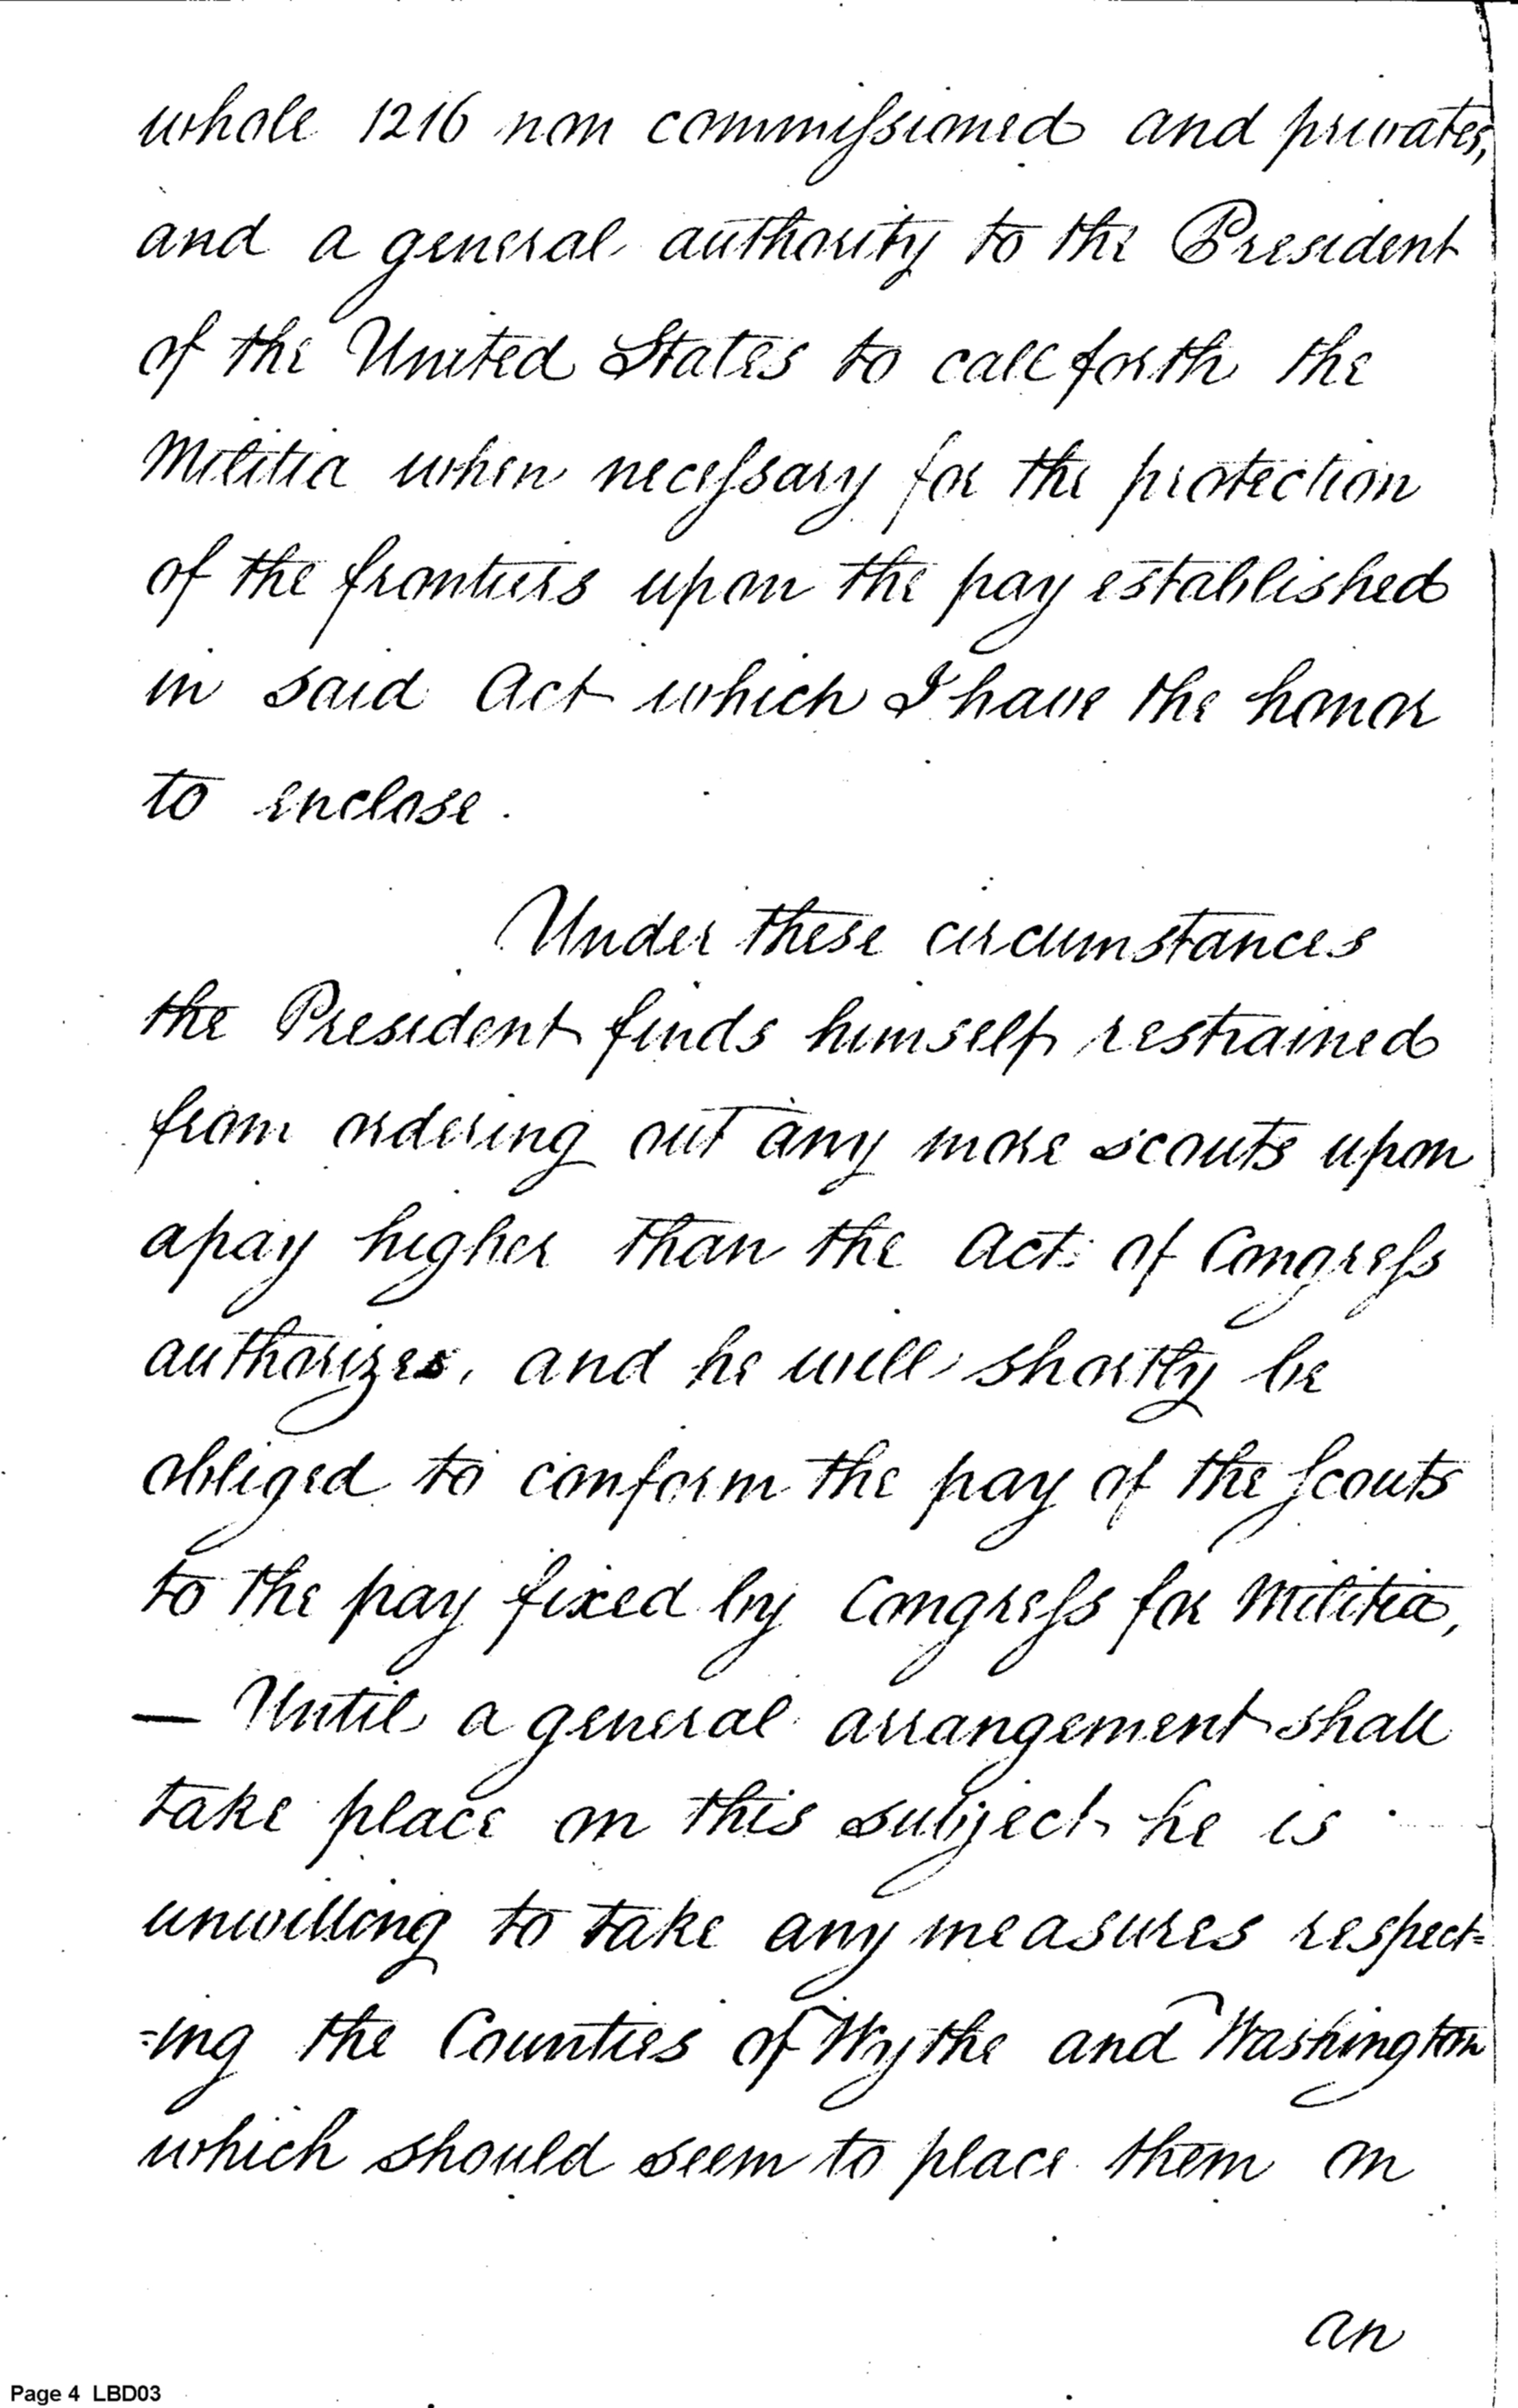 whole 1216 non commissioned and privates,
and a general authority to the President
of the United States to call forth the
Militia when necessary for the protection
of the frontiers upon the pay established
in said Act which I have the honor
to enclose.
Under these circumstances
the President finds himself restrained
from ordering out any more scouts upon
a pay higher than the Act of Congress
authorizes, and he will shortly be
obliged to conform the pay of the Scouts
to the pay fixed by Congress for Militia,
— Until a general arrangement shall
take place on this subject he is
unwilling to take any measures respect=
=ing the Counties of Wythe and Washington
which should seem to place them on
an
Page 4 LBD03